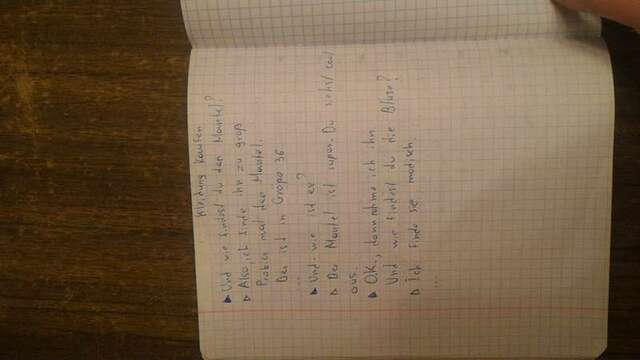 Kleidung kaufen
▶ Und wie findest du den Mantel?
▷ Also, ich finde ihn zu groß.
Probier mal den Mantel.
Der ist in Größe 36
...
▶ Und wie ist er?
▷ Der Mantel ist super. Du siehst cool
aus.
▶ O.K., dann nehme ich ihn.
Und wie findest du die Bluse?
▷ Ich finde sie modisch.
...